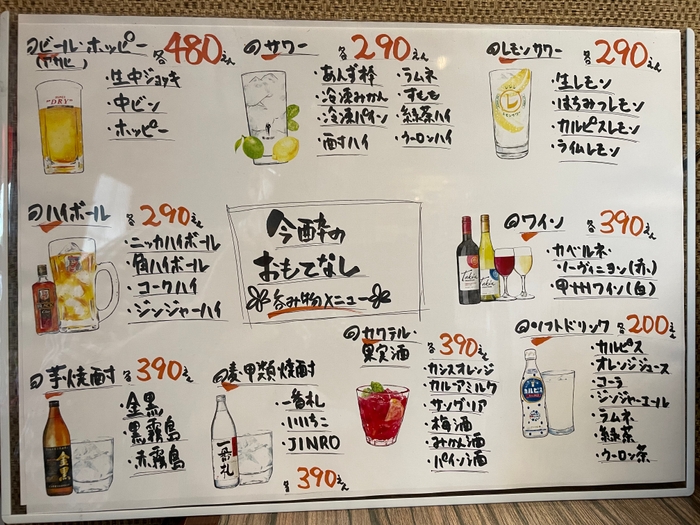 ビール・ホッピー 各480えん
(アサヒ)
・生中ジョッキ
・中ビン
・ホッピー
DRY
サワー 各290えん
・あんず棒
・冷凍みかん
・冷凍パイン
・酎ハイ
・ラムネ
・すもも
・緑茶ハイ
・ウーロンハイ
レモンサワー 各290えん
・生レモン
・はちみつレモン
・カルピスレモン
・ライムレモン
ハイボール 各290えん
・ニッカハイボール
・角ハイボール
・コークハイ
・ジンジャーハイ
今酔の
おもてなし
呑み物メニュー
ワイン 各390えん
・カベルネ・
ソーヴィニヨン(赤)
・甲州ワイン(白)
芋焼酎 各390えん
・金黒
・黒霧島
・赤霧島
金黒
麦・甲類焼酎
・一番札
・いいちこ
・JINRO
各390えん
一番札
カクテル・
果実酒 各390えん
・カシスオレンジ
・カルーアミルク
・サングリア
・梅酒
・みかん酒
・パイン酒
ソフトドリンク 各200えん
・カルピス
・オレンジジュース
・コーラ
・ジンジャーエール
・ラムネ
・緑茶
・ウーロン茶
カルピス